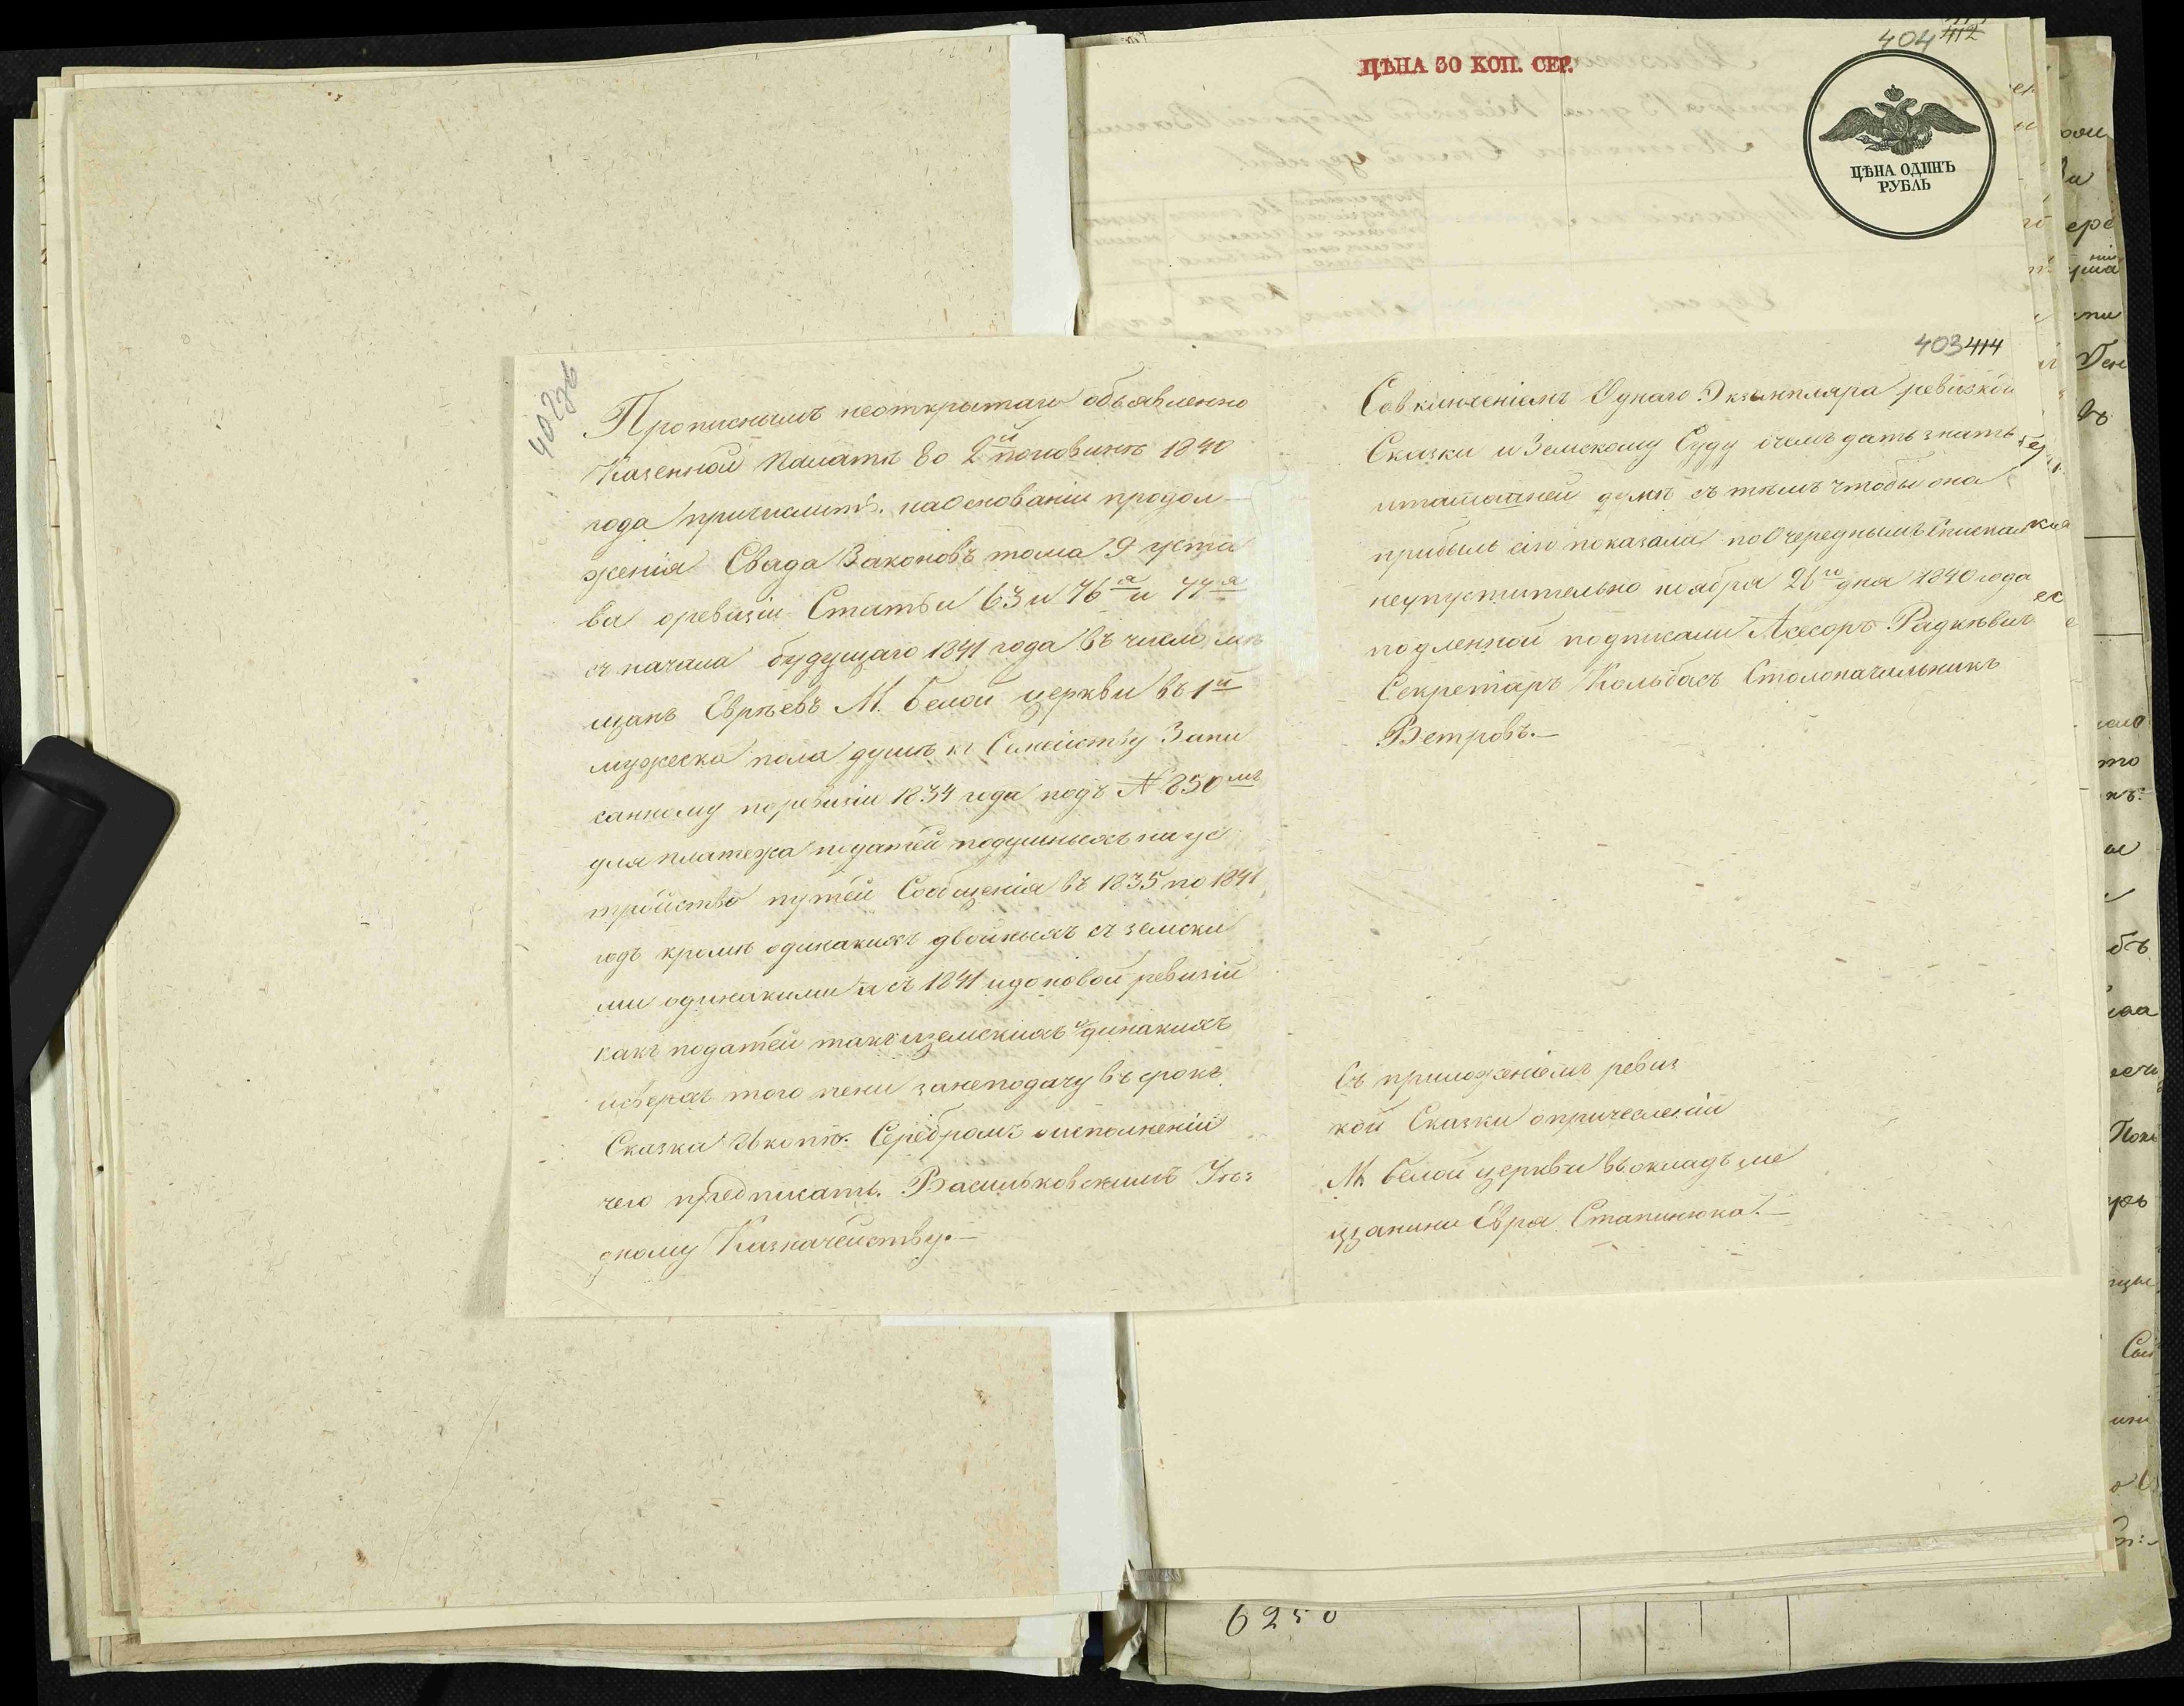 402 об
Прописнымъ неоткрытаго объявленно
Казенной Палатѣ во 2й половинѣ 1840
года причислить. на Основаніи продол-
женія Свода Законовъ тома 9 уста
ва оревизіи Статьи 63 и 76я и 77я
съ начала будущаго 1841 года въ число мѣ
щанъ Евреѣвъ М. белой церкви въ 1й
мужеска пола душѣ къ Семейству Запи
санному поревизіи 1834 года подъ № 850мъ
для платежа податей подушныхъ на ус
тройство путей Сообщенія въ 1835 по 1841
годъ кромѣ одинакихъ двойныхъ съ земски
ми одинакими а съ 1841 и до новой ревизіи
какъ податей такъ и земскихъ одинакихъ
исверхъ того пени занеподачу въ срокъ
Сказки коп. Серебромъ оисполненіи
чего предписать. Васильковскимъ Уѣз
дному Казначейству.—
ЦѢНА 30 КОП. СЕР.
404 412
ЦѢНА ОДИНЪ
РУБЛЬ
403 414
Совключеніемъ Однаго Экземпляра ревизкой
Сказки и Земскому Суду очемъ дать знать
думѣ съ тѣмъ чтобы она
прибыль сію показала по Очереднымъ Спискамъ
неупустительно ноября 26го дня 1840 года
подленной подписали Асесоръ Радкѣвичъ
Секретарь Кольбасъ Столоначальникъ
Ветровъ.—
Съ приложеніемъ ревиз
кой Сказки опричесленіи
М. белой церкви въ окладъ ме
щанини Евра Стапинюка.—
6250